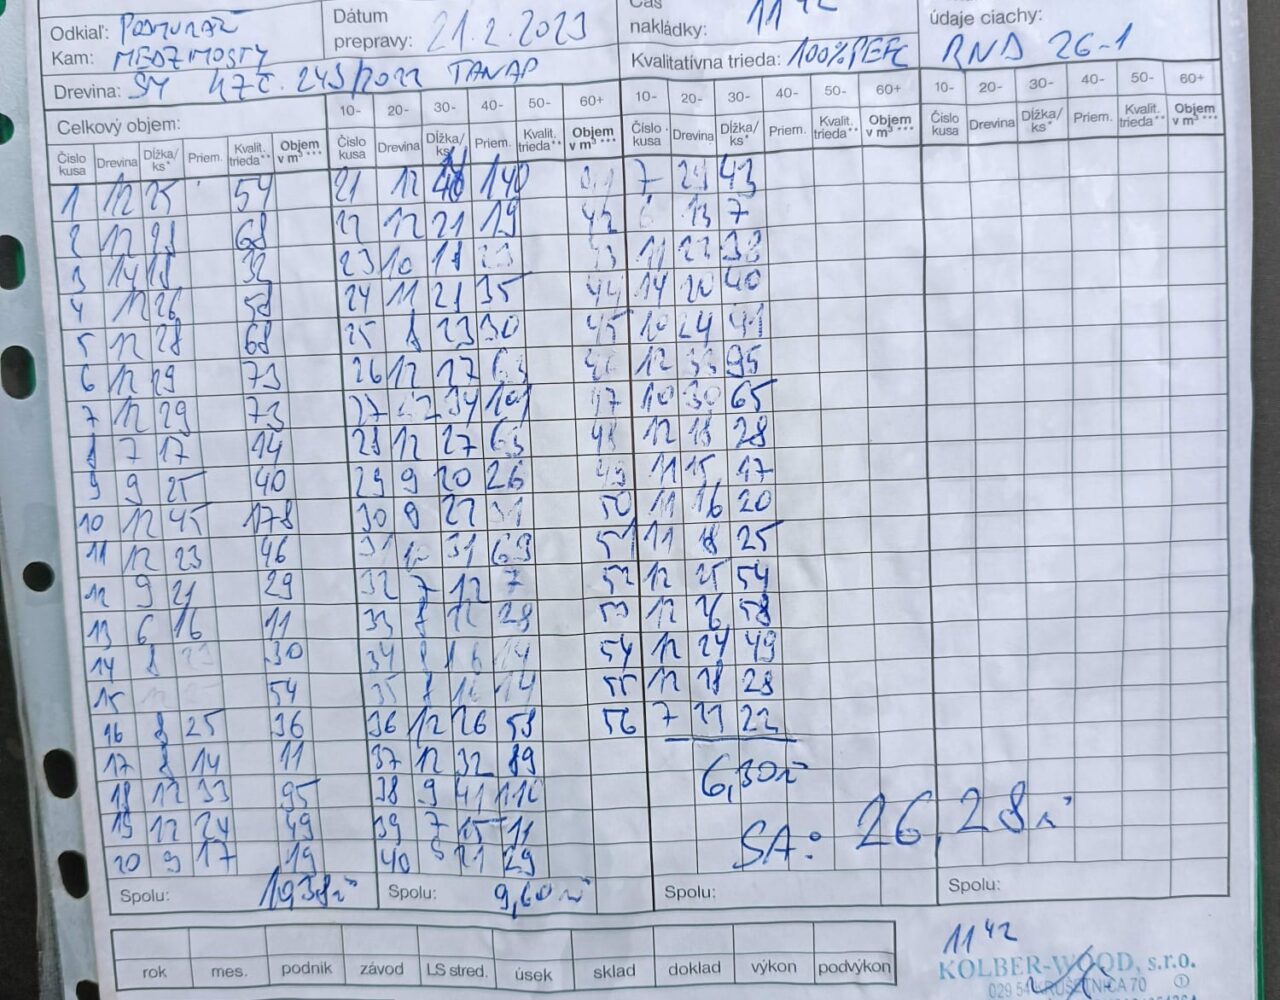 Odkiaľ: PODMURAŽ Dátum prepravy: 21.2.2023 Čas nakládky: 11 42 údaje ciachy:
Kam: MEDZIMOSTY Kvalitatívna trieda: 100% PEFC RND 26-1
Drevina: SM 47Č. 243/2022 TANAP
10- 20- 30- 40- 50- 60+ 10- 20- 30- 40- 50- 60+ 10- 20- 30- 40- 50- 60+
Celkový objem:
Číslo kusa Drevina Dĺžka/ks* Priem. Kvalit. trieda** Objem v m³ *** Číslo kusa Drevina Dĺžka/ks* Priem. Kvalit. trieda** Objem v m³ *** Číslo kusa Drevina Dĺžka/ks* Priem. Kvalit. trieda** Objem v m³ *** Číslo kusa Drevina Dĺžka/ks* Priem. Kvalit. trieda** Objem v m³ ***
1 12 25 54 21 12 140 7 29 43
2 12 28 68 22 12 21 19 42 13 7
3 14 18 32 23 10 18 23 11 22 38
4 12 26 58 24 11 21 35 44 14 20 40
5 12 28 68 25 8 23 30 45 10 24 41
6 12 29 73 26 12 27 63 12 33 95
7 12 29 73 27 12 34 101 47 10 30 65
8 7 17 14 28 12 27 63 48 12 18 28
9 9 25 40 29 9 20 26 49 11 15 17
10 12 45 178 30 8 22 31 50 11 16 20
11 12 23 46 31 10 31 69 51 11 18 25
12 9 21 29 32 7 12 7 52 12 25 54
13 6 16 11 33 8 28 53 12 26 58
14 8 23 30 34 8 16 14 54 12 24 49
15 12 25 54 35 8 16 14 55 12 18 28
16 8 25 36 36 12 26 58 56 7 21 22
17 8 14 11 37 12 32 89 6,30
18 12 33 95 38 9 41 110
19 12 24 49 39 7 15 11 SA: 26,28
20 9 17 19 40 21 29
Spolu: Spolu: 9,60 Spolu: Spolu:
rok mes. podnik závod LS stred. úsek sklad doklad výkon podvýkon
11 42
KOLBER-WOOD, s.r.o.
029 54 KRUŠETNICA 70